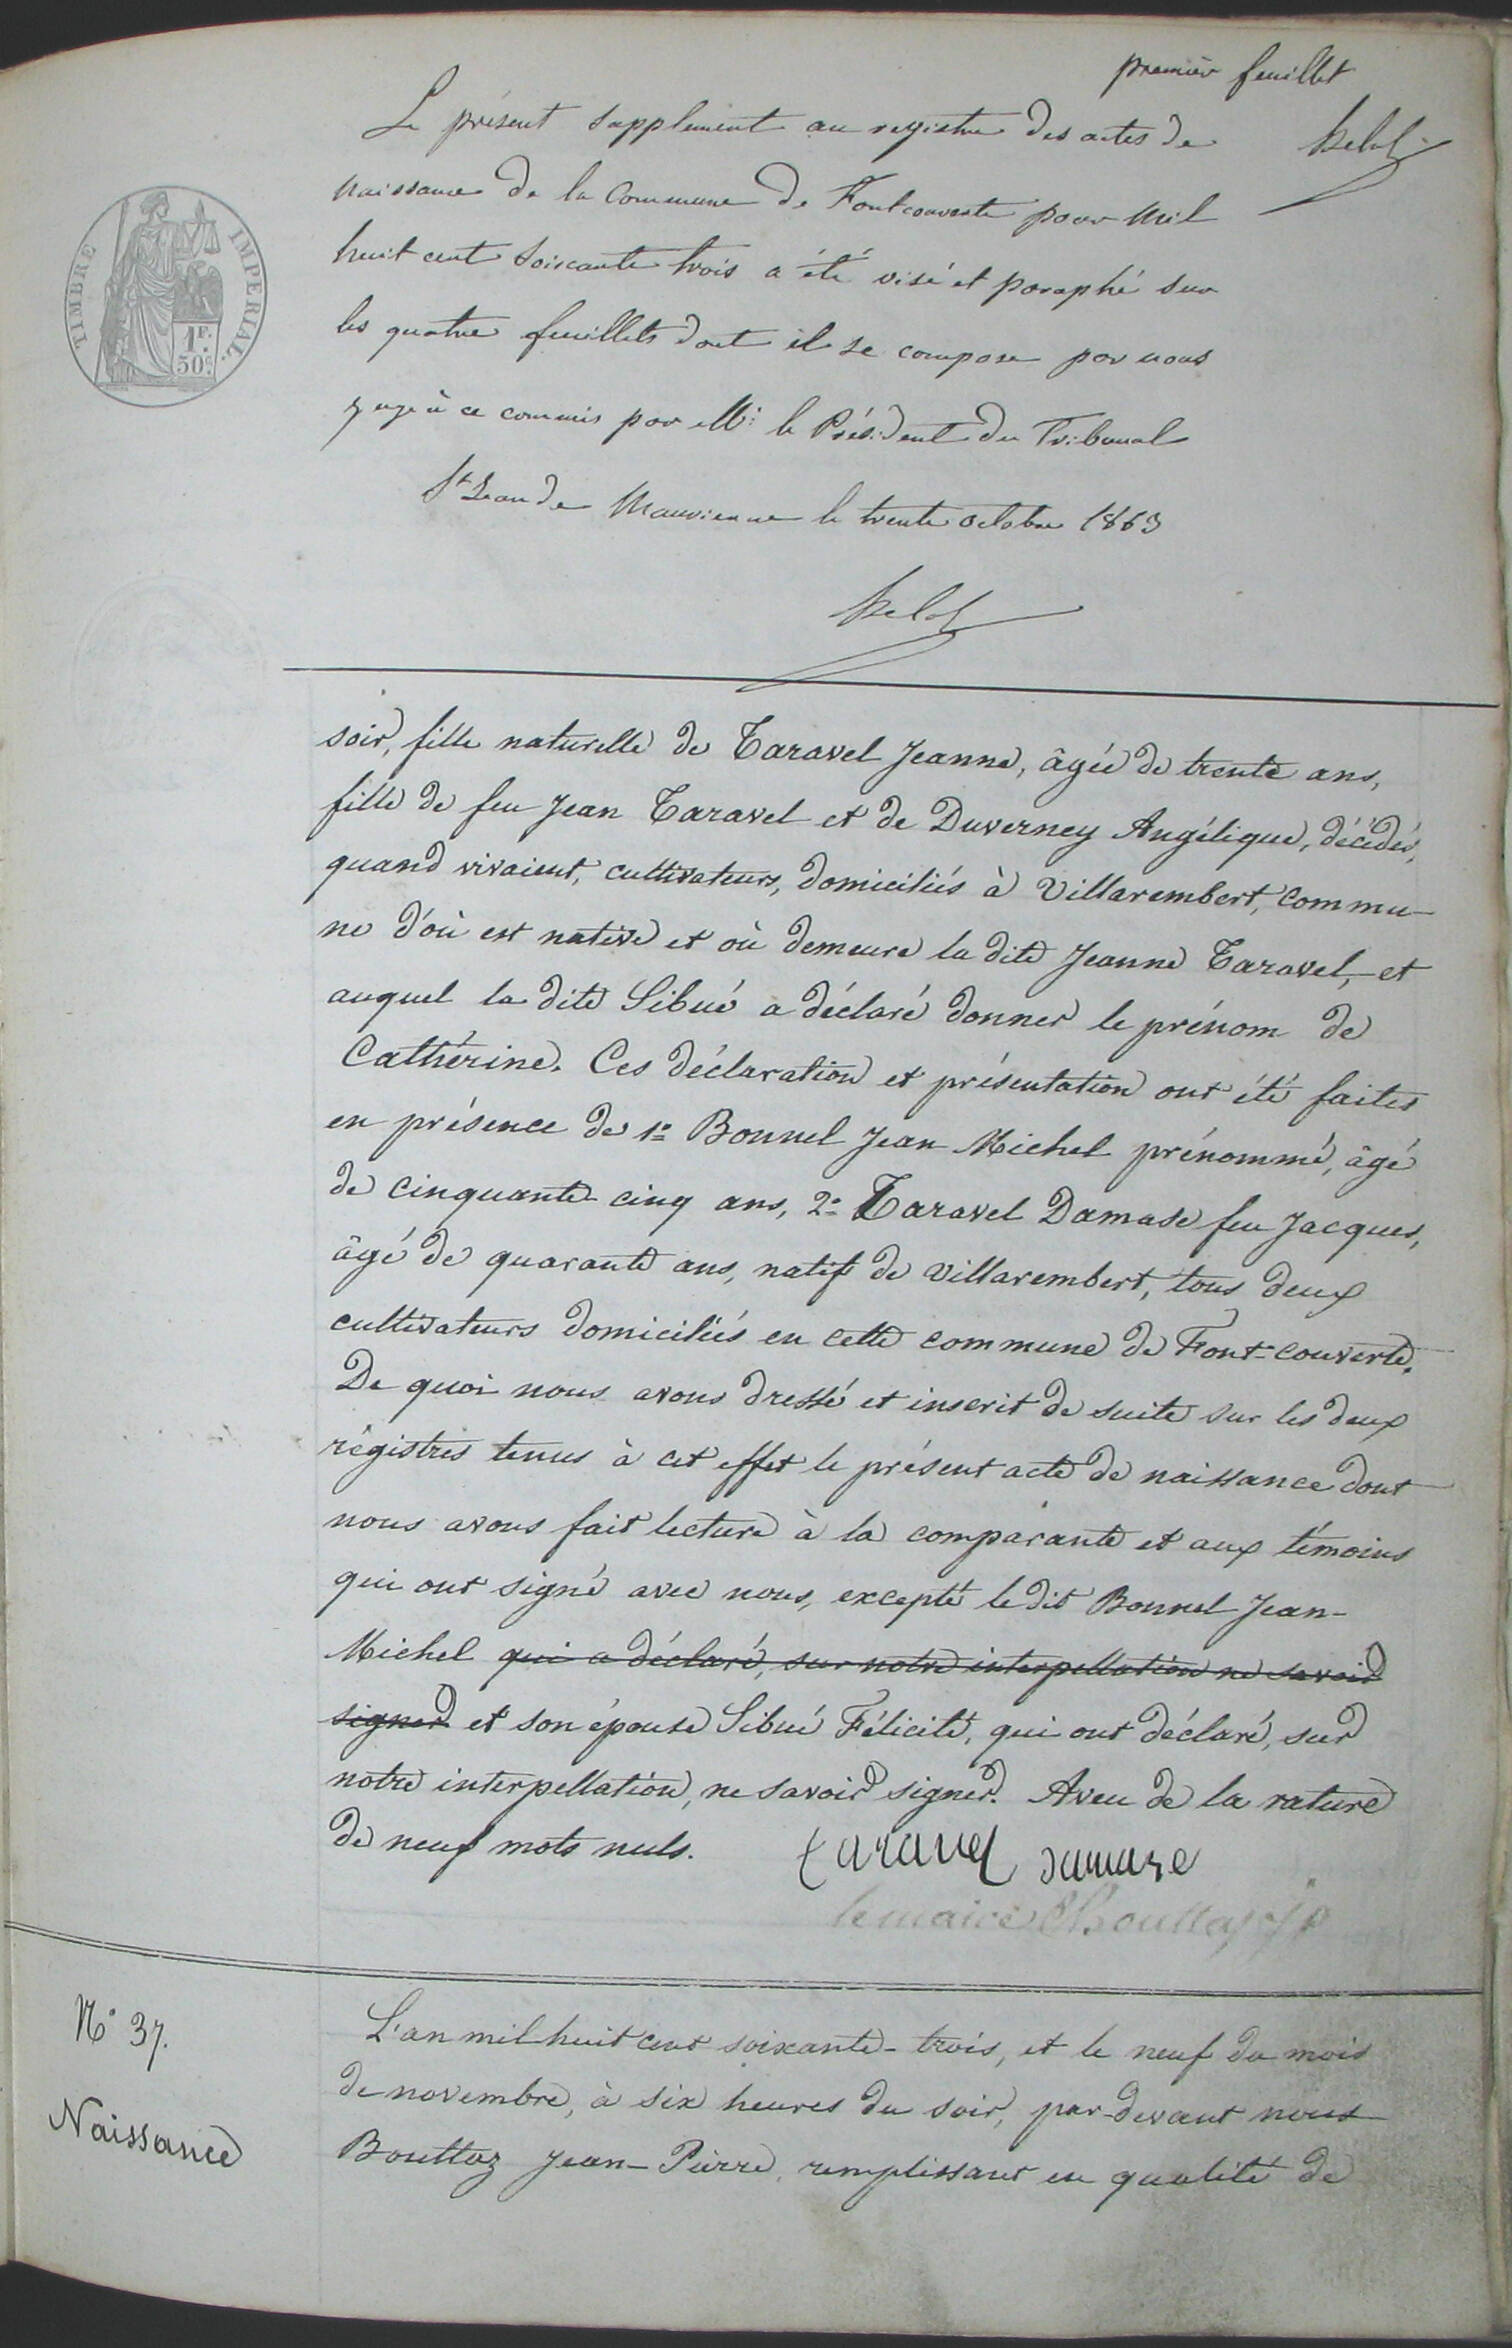 premier feuillet
Le présent supplément au registre des actes de
naissance de la Commune de Fontcouverte pour mil
huit cent soixante trois a été visé et paraphé sur
les quatre feuillets dont il se compose par nous
juge à ce commis par Mr. le Président du Tribunal
St Jean de Maurienne le trente octobre 1863
TIMBRE IMPERIAL.
1F.
50c.
soir, fille naturelle de Taravel Jeanne, âgée de trente ans,
fille de feu Jean Taravel et de Duverney Angélique, décédés,
quand vivaient, cultivateurs, domiciliés à Villarembert, commu-
ne d'où est native et où demeure la dite Jeanne Taravel, et
auquel la dite Sibué a déclaré donner le prénom de
Cathérine. Ces déclaration et présentation ont été faites
en présence de 1º Bonnel Jean Michel prénommé, âgé
de cinquante-cinq ans, 2º Taravel Damase feu Jacques,
âgé de quarante ans, natif de Villarembert, tous deux
cultivateurs domiciliés en cette commune de Font-couverte.
De quoi nous avons dressé et inscrit de suite sur les deux
régistres tenus à cet effet le présent acte de naissance dont
nous avons fait lecture à la comparante et aux témoins
qui ont signé avec nous, excepté le dit Bonnel Jean-
Michel qui a déclaré, sur notre interpellation ne savoir
signer et son épouse Sibué Félicité, qui ont déclaré, sur
notre interpellation, ne savoir signer. Aveu de la rature
de neuf mots nuls.
taravel damase
le maire Bouttaz jp
Nº 37.
Naissance
L'an mil huit cent soixante-trois, et le neuf du mois
de novembre, à six heures du soir, par-devant nous
Bouttaz Jean-Pierre, remplissant en qualité de